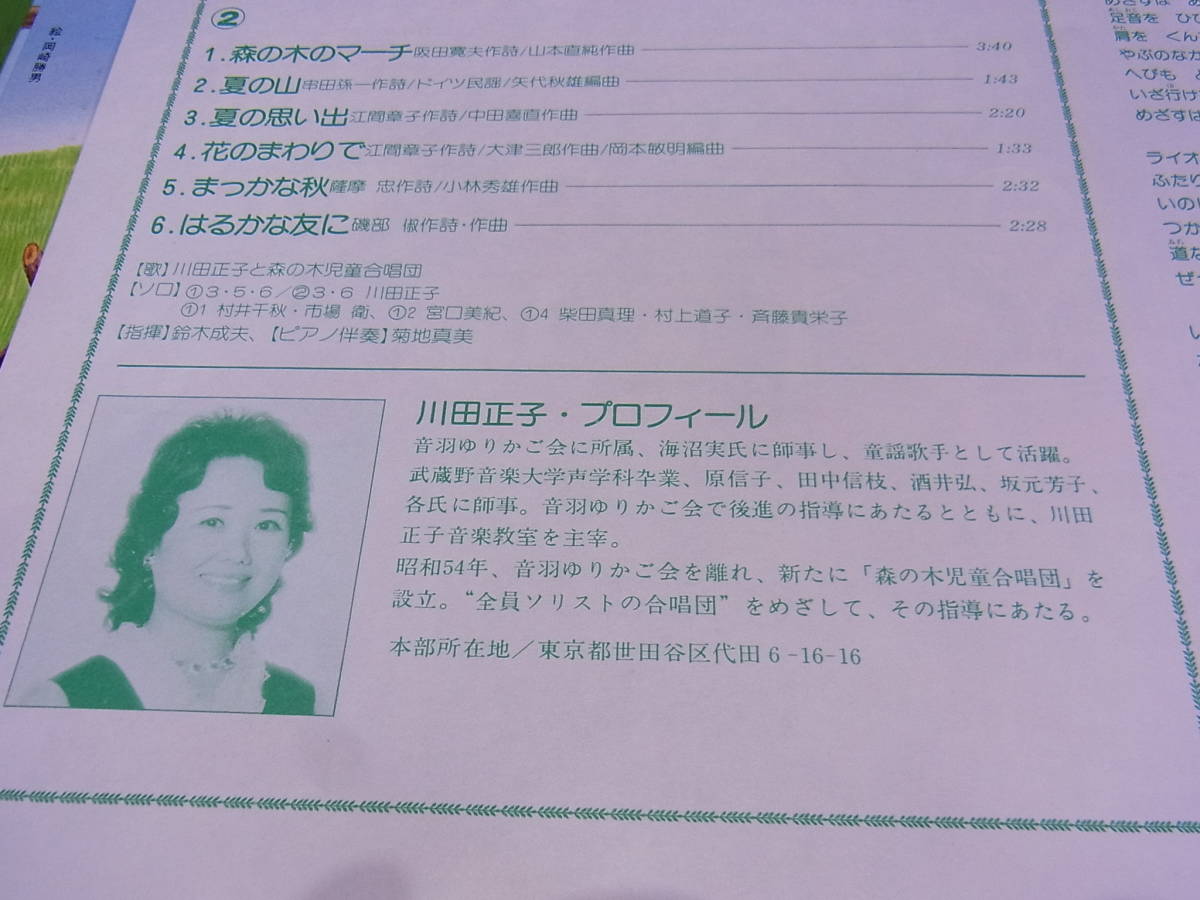 絵・岡崎勝男
②
1.森の木のマーチ 阪田寛夫作詩/山本直純作曲 3:40
2.夏の山 串田孫一作詩/ドイツ民謡/矢代秋雄編曲 1:43
3.夏の思い出 江間章子作詩/中田喜直作曲 2:20
4.花のまわりで 江間章子作詩/大津三郎作曲/岡本敏明編曲 1:33
5.まっかな秋 薩摩 忠作詩/小林秀雄作曲 2:32
6.はるかな友に 磯部 俶作詩・作曲 2:28
【歌】川田正子と森の木児童合唱団
【ソロ】①3・5・6/②3・6 川田正子
①1 村井千秋・市場 衛、①2 宮口美紀、①4 柴田真理・村上道子・斉藤貴栄子
【指揮】鈴木成夫、【ピアノ伴奏】菊地真美
川田正子・プロフィール
音羽ゆりかご会に所属、海沼実氏に師事し、童謡歌手として活躍。
武蔵野音楽大学声学科卒業、原信子、田中信枝、酒井弘、坂元芳子、
各氏に師事。音羽ゆりかご会で後進の指導にあたるとともに、川田
正子音楽教室を主宰。
昭和54年、音羽ゆりかご会を離れ、新たに「森の木児童合唱団」を
設立。“全員ソリストの合唱団”をめざして、その指導にあたる。
本部所在地/東京都世田谷区代田6-16-16
足音を ひ
肩を くん
やぶのなか
へびも
いざ行け
めざすは
ライオ
ふたり
いのり
つか
道な
ぜ
い